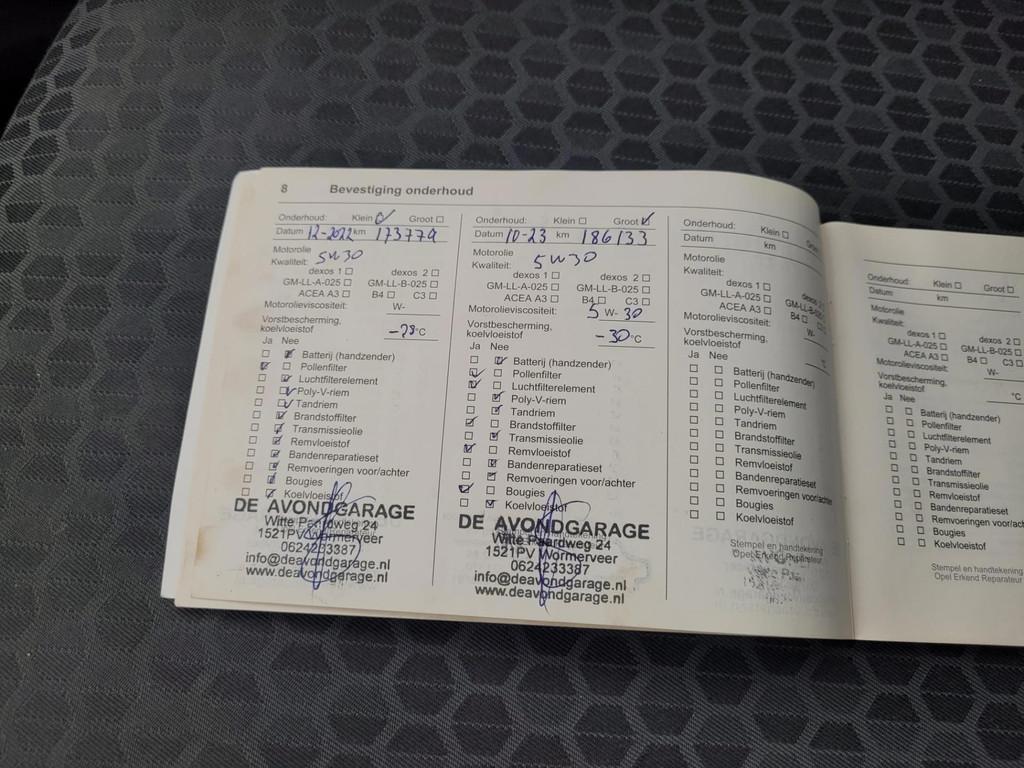 8 Bevestiging onderhoud
Onderhoud: Klein ☑ Groot ☐
Datum 12-2022 km 173779
Motorolie
Kwaliteit: 5W30
dexos 1 ☐ dexos 2 ☐
GM-LL-A-025 ☐ GM-LL-B-025 ☐
ACEA A3 ☐ B4 ☐ C3 ☐
Motorolieviscositeit: W-
Vorstbescherming,
koelvloeistof -28°C
Ja Nee
☐ ☑ Batterij (handzender)
☑ ☐ Pollenfilter
☐ ☑ Luchtfilterelement
☐ ☑ Poly-V-riem
☐ ☑ Tandriem
☐ ☑ Brandstoffilter
☐ ☑ Transmissieolie
☐ ☑ Remvloeistof
☐ ☑ Bandenreparatieset
☐ ☑ Remvoeringen voor/achter
☐ ☑ Bougies
☐ ☑ Koelvloeistof
DE AVONDGARAGE
Witte Paardweg 24
1521PV Wormerveer
0624233387
info@deavondgarage.nl
www.deavondgarage.nl
Onderhoud: Klein ☐ Groot ☑
Datum 10-23 km 186133
Motorolie
Kwaliteit: 5W30
dexos 1 ☐ dexos 2 ☐
GM-LL-A-025 ☐ GM-LL-B-025 ☐
ACEA A3 ☐ B4 ☐ C3 ☐
Motorolieviscositeit: 5 W- 30
Vorstbescherming,
koelvloeistof -30°C
Ja Nee
☐ ☑ Batterij (handzender)
☑ ☐ Pollenfilter
☑ ☐ Luchtfilterelement
☐ ☑ Poly-V-riem
☐ ☑ Tandriem
☑ ☐ Brandstoffilter
☐ ☑ Transmissieolie
☑ ☐ Remvloeistof
☐ ☑ Bandenreparatieset
☐ ☑ Remvoeringen voor/achter
☑ ☐ Bougies
☐ ☑ Koelvloeistof
DE AVONDGARAGE
Witte Paardweg 24
1521PV Wormerveer
0624233387
info@deavondgarage.nl
www.deavondgarage.nl
Onderhoud: Klein ☐
Datum km
Motorolie
Kwaliteit:
dexos 1 ☐
GM-LL-A-025 ☐
ACEA A3 ☐ B4 ☐
Motorolieviscositeit: W-
Vorstbescherming,
koelvloeistof
Ja Nee
☐ ☐ Batterij (handzender)
☐ ☐ Pollenfilter
☐ ☐ Luchtfilterelement
☐ ☐ Poly-V-riem
☐ ☐ Tandriem
☐ ☐ Brandstoffilter
☐ ☐ Transmissieolie
☐ ☐ Remvloeistof
☐ ☐ Bandenreparatieset
☐ ☐ Remvoeringen voor/achter
☐ ☐ Bougies
☐ ☐ Koelvloeistof
Stempel en handtekening
Opel Erkend Reparateur
Onderhoud: Klein ☐ Groot ☐
Datum km
Motorolie
Kwaliteit:
dexos 1 ☐ dexos 2 ☐
GM-LL-A-025 ☐ GM-LL-B-025 ☐
ACEA A3 ☐ B4 ☐ C3 ☐
Motorolieviscositeit: W-
Vorstbescherming,
koelvloeistof °C
Ja Nee
☐ ☐ Batterij (handzender)
☐ ☐ Pollenfilter
☐ ☐ Luchtfilterelement
☐ ☐ Poly-V-riem
☐ ☐ Tandriem
☐ ☐ Brandstoffilter
☐ ☐ Transmissieolie
☐ ☐ Remvloeistof
☐ ☐ Bandenreparatieset
☐ ☐ Remvoeringen voor/achter
☐ ☐ Bougies
☐ ☐ Koelvloeistof
Stempel en handtekening
Opel Erkend Reparateur